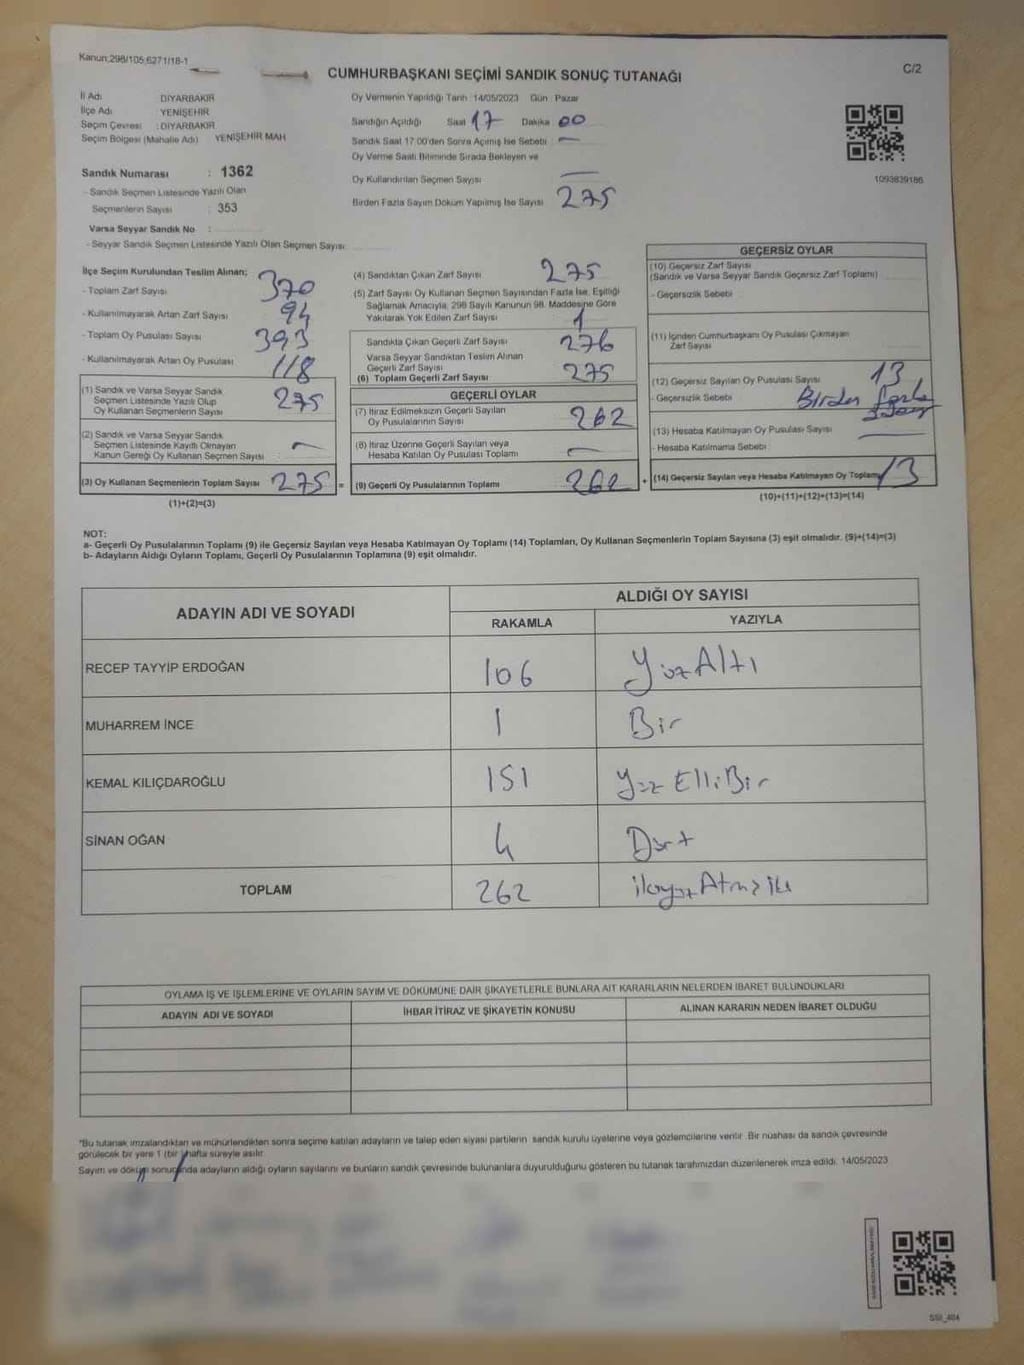 Kanun;298/105;6271/18-1
CUMHURBAŞKANI SEÇİMİ SANDIK SONUÇ TUTANAĞI
C/2
İl Adı DİYARBAKIR
İlçe Adı YENİŞEHİR
Seçim Çevresi : DİYARBAKIR
Seçim Bölgesi (Mahalle Adı) YENİŞEHİR MAH
Oy Vermenin Yapıldığı Tarih 14/05/2023 Gün Pazar
Sandığın Açıldığı Saat 17 Dakika 00
Sandık Saat 17:00'den Sonra Açılmış İse Sebebi : —
Oy Verme Saati Bitiminde Sırada Bekleyen ve
Oy Kullandırılan Seçmen Sayısı —
Birden Fazla Sayım Döküm Yapılmış İse Sayısı 275
1093839186
Sandık Numarası : 1362
- Sandık Seçmen Listesinde Yazılı Olan
Seçmenlerin Sayısı : 353
Varsa Seyyar Sandık No :
- Seyyar Sandık Seçmen Listesinde Yazılı Olan Seçmen Sayısı:
İlçe Seçim Kurulundan Teslim Alınan;
- Toplam Zarf Sayısı 370
- Kullanılmayarak Artan Zarf Sayısı 94
- Toplam Oy Pusulası Sayısı 393
- Kullanılmayarak Artan Oy Pusulası 118
(1) Sandık ve Varsa Seyyar Sandık
Seçmen Listesinde Yazılı Olup
Oy Kullanan Seçmenlerin Sayısı 275
(2) Sandık ve Varsa Seyyar Sandık
Seçmen Listesinde Kayıtlı Olmayan
Kanun Gereği Oy Kullanan Seçmen Sayısı —
(3) Oy Kullanan Seçmenlerin Toplam Sayısı 275 =
(1)+(2)=(3)
(4) Sandıktan Çıkan Zarf Sayısı 275
(5) Zarf Sayısı Oy Kullanan Seçmen Sayısından Fazla İse, Eşitliği
Sağlamak Amacıyla, 298 Sayılı Kanunun 98. Maddesine Göre
Yakılarak Yok Edilen Zarf Sayısı 1
Sandıkta Çıkan Geçerli Zarf Sayısı 276
Varsa Seyyar Sandıktan Teslim Alınan
Geçerli Zarf Sayısı
(6) Toplam Geçerli Zarf Sayısı 275
GEÇERLİ OYLAR
(7) İtiraz Edilmeksizin Geçerli Sayılan
Oy Pusulalarının Sayısı 262
(8) İtiraz Üzerine Geçerli Sayılan veya
Hesaba Katılan Oy Pusulası Toplamı —
(9) Geçerli Oy Pusulalarının Toplamı 262 +
GEÇERSİZ OYLAR
(10) Geçersiz Zarf Sayısı
(Sandık ve Varsa Seyyar Sandık Geçersiz Zarf Toplamı)
- Geçersizlik Sebebi
(11) İçinden Cumhurbaşkanı Oy Pusulası Çıkmayan
Zarf Sayısı
(12) Geçersiz Sayılan Oy Pusulası Sayısı 13
- Geçersizlik Sebebi Birden Fazla
(13) Hesaba Katılmayan Oy Pusulası Sayısı —
- Hesaba Katılmama Sebebi
(14) Geçersiz Sayılan veya Hesaba Katılmayan Oy Toplamı 13
(10)+(11)+(12)+(13)=(14)
NOT:
a- Geçerli Oy Pusulalarının Toplamı (9) ile Geçersiz Sayılan veya Hesaba Katılmayan Oy Toplamı (14) Toplamları, Oy Kullanan Seçmenlerin Toplam Sayısına (3) eşit olmalıdır. (9)+(14)=(3)
b- Adayların Aldığı Oyların Toplamı, Geçerli Oy Pusulalarının Toplamına (9) eşit olmalıdır.
ADAYIN ADI VE SOYADI ALDIĞI OY SAYISI
RAKAMLA YAZIYLA
RECEP TAYYİP ERDOĞAN 106 Yüz Altı
MUHARREM İNCE 1 Bir
KEMAL KILIÇDAROĞLU 151 Yüz Elli Bir
SİNAN OĞAN 4 Dört
TOPLAM 262 ikiyüz Atmış iki
OYLAMA İŞ VE İŞLEMLERİNE VE OYLARIN SAYIM VE DÖKÜMÜNE DAİR ŞİKAYETLERLE BUNLARA AİT KARARLARIN NELERDEN İBARET BULUNDUKLARI
ADAYIN ADI VE SOYADI İHBAR İTİRAZ VE ŞİKAYETİN KONUSU ALINAN KARARIN NEDEN İBARET OLDUĞU
*Bu tutanak imzalandıktan ve mühürlendikten sonra seçime katılan adayların ve talep eden siyasi partilerin sandık kurulu üyelerine veya gözlemcilerine verilir. Bir nüshası da sandık çevresinde
görülecek bir yere 1 (bir) hafta süreyle asılır.
Sayım ve döküm sonucunda adayların aldığı oyların sayılarını ve bunların sandık çevresinde bulunanlara duyurulduğunu gösteren bu tutanak tarafımızdan düzenlenerek imza edildi. 14/05/2023